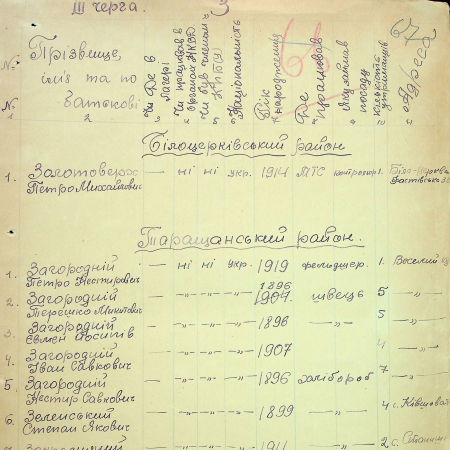 III черга. 3
67
№ Прізвище, ім'я та по батькові
Чи був в лагері
Чи працював в органах НКВД
Чи був членом КП(б)У
Національність
Рік народження
Де працював
Яку займав посаду
кількість утриманців
Адреса
№ 1 2
Білоцерківський район
1. Золотоверх — ні ні укр. 1914 МТС контролер 1. Біла-Церква
Петро Михайлович Фастівська
Таращанський район.
1. Загородній — ні ні укр. 1919 фельдшер. 1. Веселий
Петро Нестирович
1896
2. Загородній — -"- -"- -"- 1904. швець 5 -"-
Терешко Микитович
3. Загородній — -"- -"- -"- 1896 -"- 5 -"-
Євмен Йосипів
4. Загородній — -"- -"- -"- 1907 -"- 4 -"-
Іван Савкович
5. Загородній — -"- -"- -"- 1896 хлібороб 7 -"-
Нестир Савкович
6. Зеленський — -"- -"- -"- 1899 -"- 4 с. Ківшовата
Степан Якович
— -"- -"- -"- 1911 -"- 2 с.